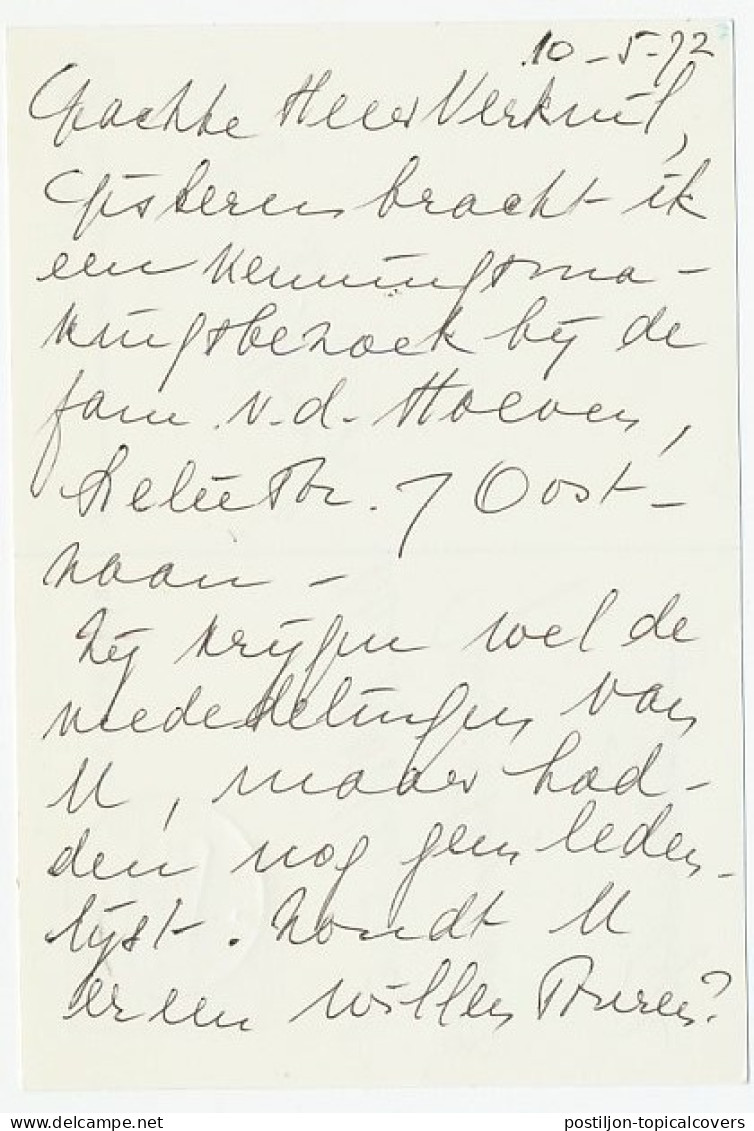 10-5-72
Geachte Heer Verkuil,
Gisteren bracht ik
een kenningsma-
kingsbezoek bij de
fam. v.d. Hoeven,
7 Oost-
zaan -
Zij krijgen wel de
mededelingen van
U, maar had-
den nog geen leden-
lijst. Zoudt U
er een willen sturen?
postiljon-topicalcovers